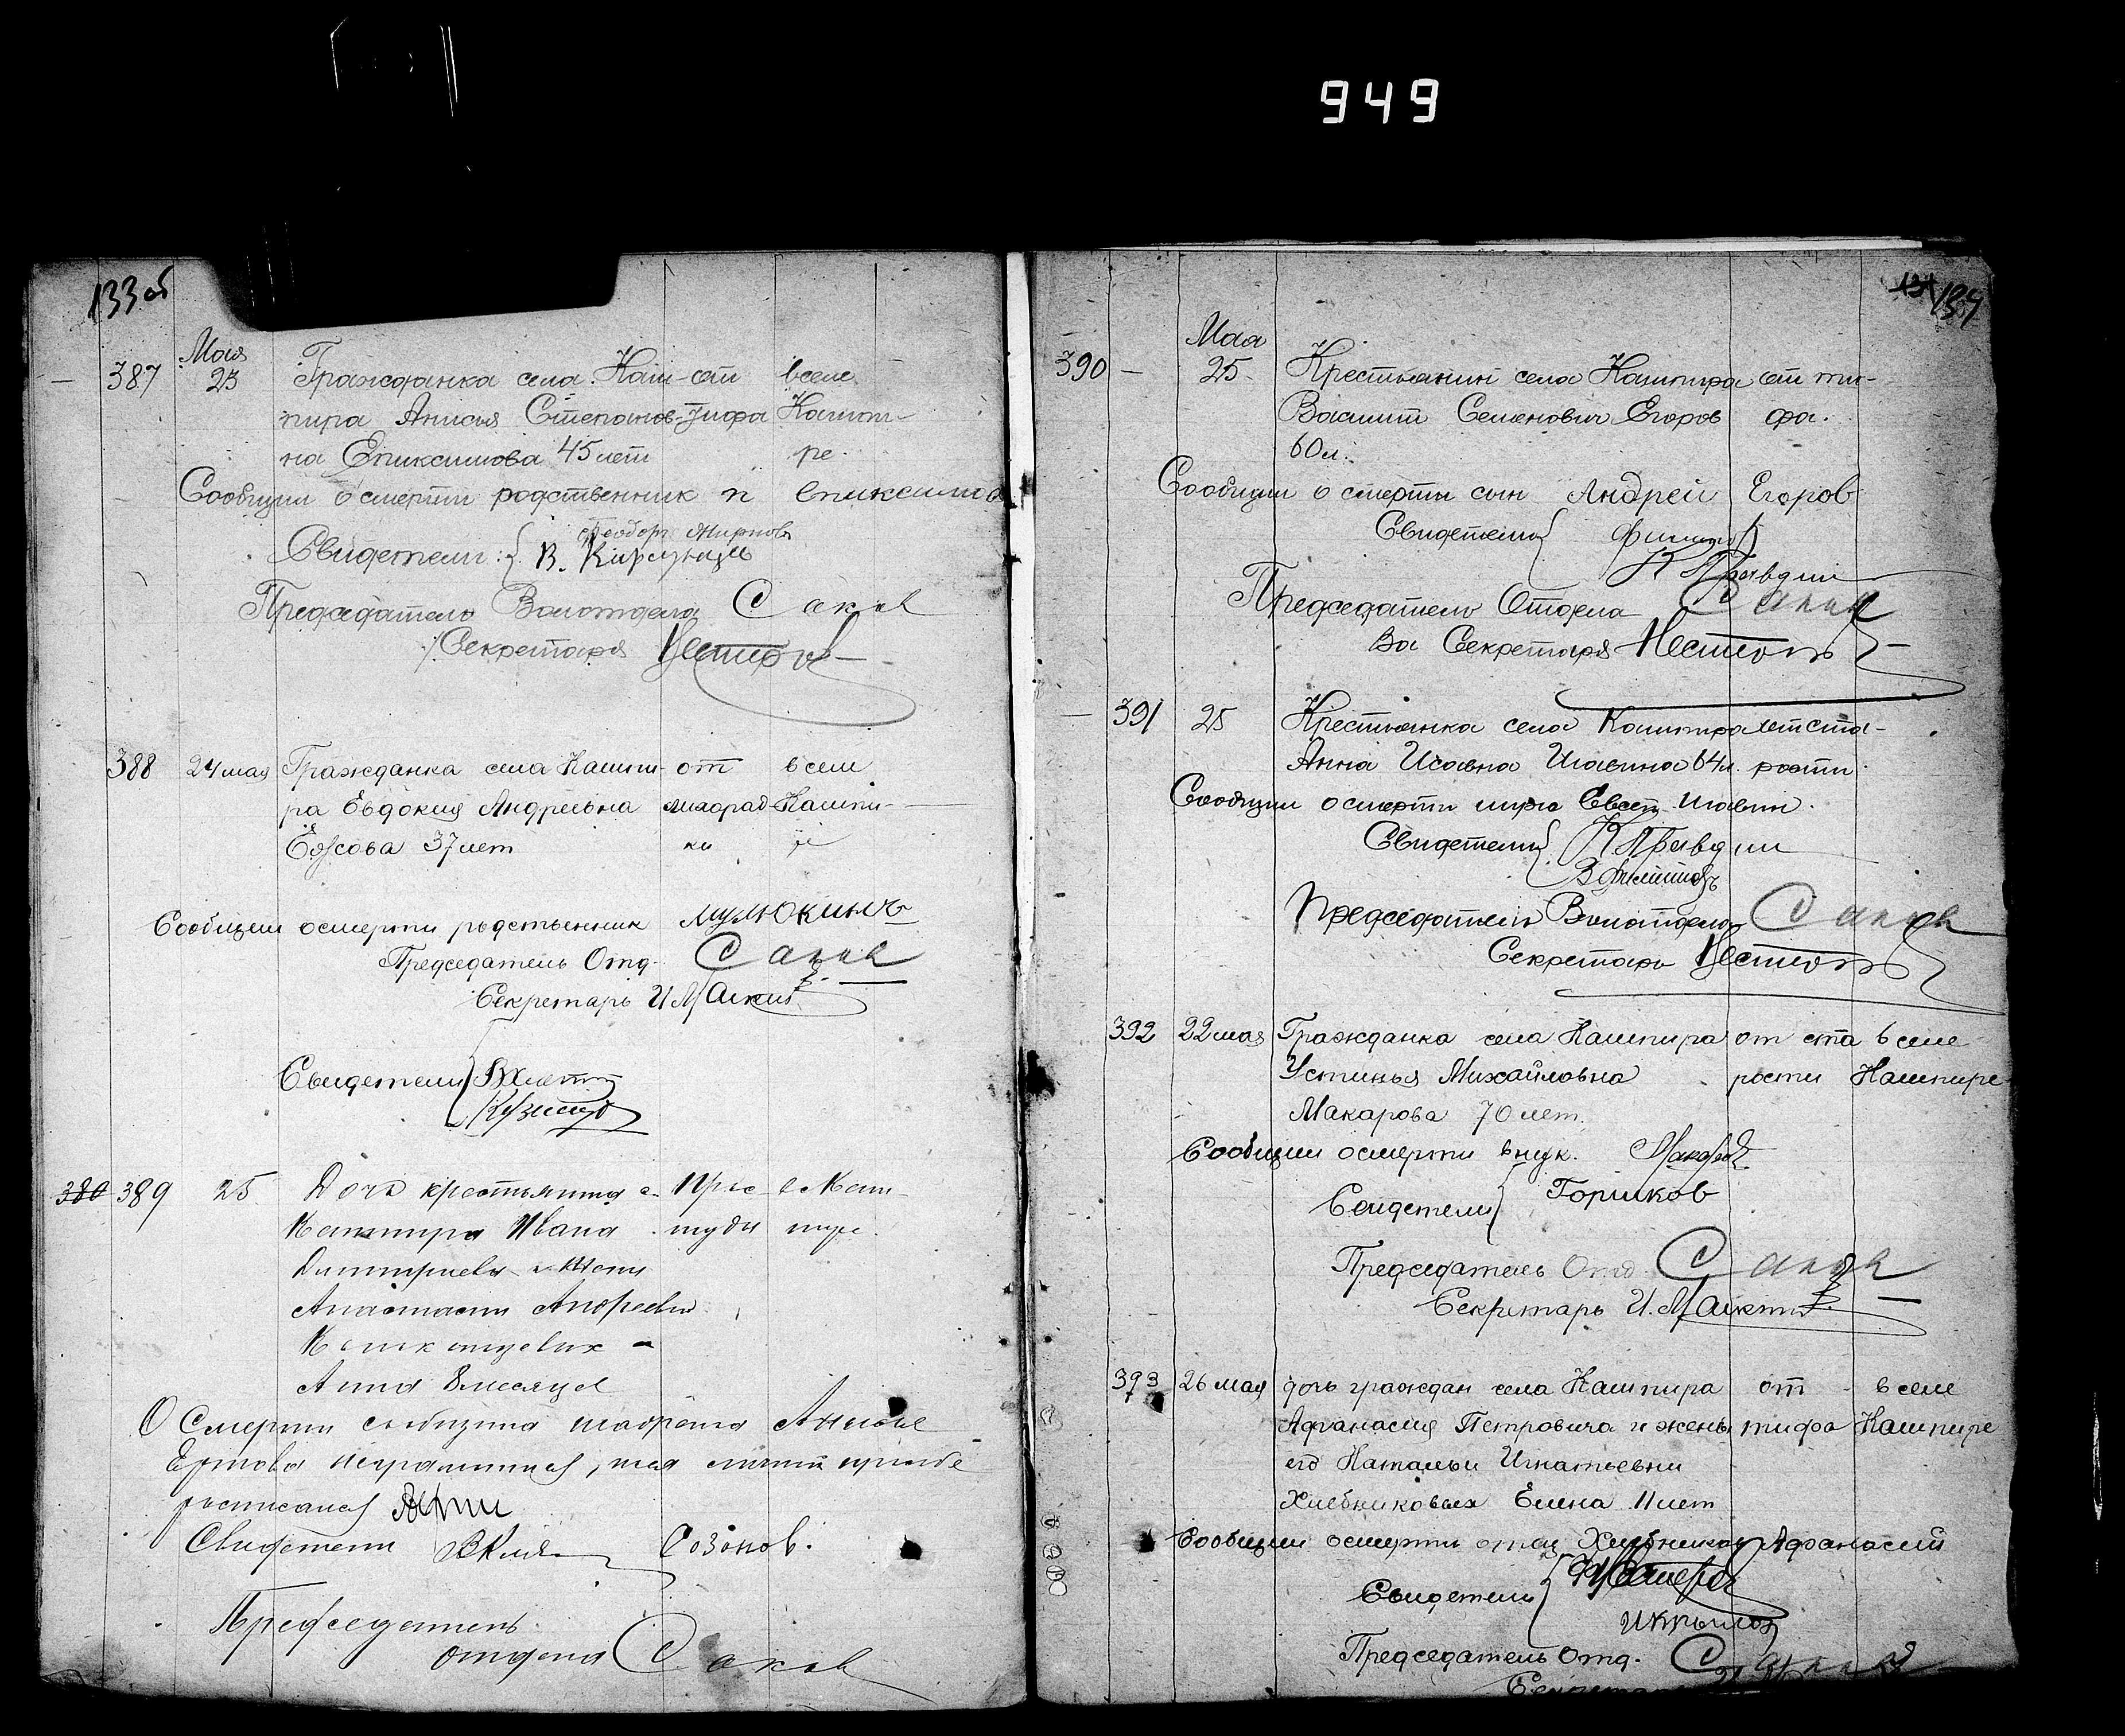 949
133 об
387
Мая
23
Гражданка села Каш- от в селе
пира Анисья Степанов- тифа Кашпи-
на Епиксимова 45 лет ре.
Сообщил о смерти родственник п Епиксимов
Свидетели: Федор Миронов
В.
Председатель Волотдела Саков
Секретаря Нестеров
388 24 мая Гражданка села Кашпи- от в селе
ра Евдокия Андреевна лихорад- Кашпи-
37 лет ки ре
Сообщил о смерти родственник Мулюкинъ
Председатель Отд. Саков
Секретарь И.
Свидетели
380 389 25 Дочь крестьянина с. Прос- в Каш-
Кашпира Ивана туды пире.
Дмитриева и жены
Анастасии Андреевны
Анна 8 месяцев
О смерти сообщила
неграмотная, за
росписался
Свидетели Созонов.
Председатель
отдела Саков
134
Мая
390 — 25 Крестьянин села Кашпира от ти-
Василий Семенович Егоров фа.
60 л.
Сообщил о смерти сын Андрей Егоров
Свидетели
К Правдин
Председатель Отдела Саков
За Секретаря Нестеров
391 25 Крестьянка села Кашпира от ста-
Анна Исаевна 64 л. рости
Сообщил о смерти
Свидетели К Правдин
В Филиппов
Председатель Волотдела Саков
Секретарь Нестеров
392 22 мая Гражданка села Кашпира от ста в селе
Устинья Михайловна рости Кашпире
Макарова 70 лет.
Сообщил о смерти внук. Макаров
Свидетели Горшков
Председатель Отд. Саков
Секретарь И.
393 26 мая дочь граждан села Кашпира от в селе
Афанасия Петровича и жены тифа Кашпире
его Натальи Игнатьевны
Хлебниковых Елена 11 лет
Сообщил о смерти отец Хлебников Афанасий
Свидетели
И Крылов
Председатель Отд. Саков